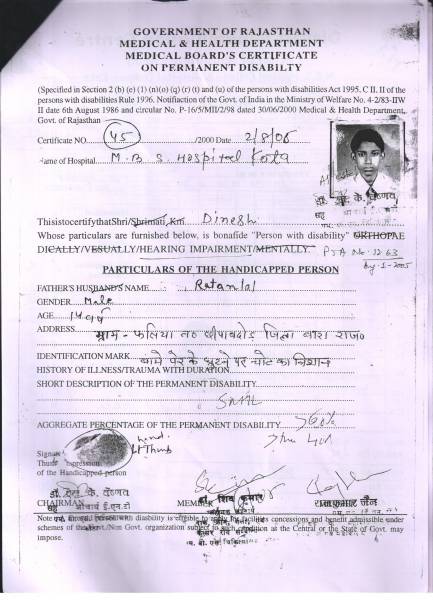 GOVERNMENT OF RAJASTHAN
MEDICAL & HEALTH DEPARTMENT
MEDICAL BOARD'S CERTIFICATE
ON PERMANENT DISABILTY
(Specified in Section 2 (b) (e) (1) (n)(o) (q) (r) (t) and (u) of the persons with disabilities Act 1995, C II. II of the
persons with disabilities Rule 1996. Notifiaction of the Govt. of India in the Ministry of Welfare No. 4-2/83-IIW
II date 6th August 1986 and circular No. P-16/5/MII/2/98 dated 30/06/2000 Medical & Health Department
Govt. of Rajasthan
Certificate NO. 45 /2000 Date 2/8/06
Name of Hospital M.B.S. Hospital Kota
This is to certify that Shri/Shrimati, Km Dinesh
Whose particulars are furnished below, is bonafide "Person with disability" ORTHOPAE
DICALLY/VESUALLY/HEARING IMPAIRMENT/MENTALLY.
PARTICULARS OF THE HANDICAPPED PERSON
FATHER'S HUSBAND'S NAME Ratanlal
GENDER Male
AGE 14 वर्ष
ADDRESS ग्राम - फलिया त० छीपाबड़ोद जिला बारां राज०
IDENTIFICATION MARK बायें पैर के घुटने पर चोट का निशान
HISTORY OF ILLNESS/TRAUMA WITH DURATION
SHORT DESCRIPTION OF THE PERMANENT DISABILITY
SNHL
AGGREGATE PERCENTAGE OF THE PERMANENT DISABILITY. >60%
Thumb
of the Handicapped person
CHAIRMAN MEMBER राजकुमार जैन
Note with disability is eligible to apply for facilities concessions and benefit admissible under
schemes of the Govt./Non Govt. organization subject to such condition at the Central or the State of Govt. may
impose.